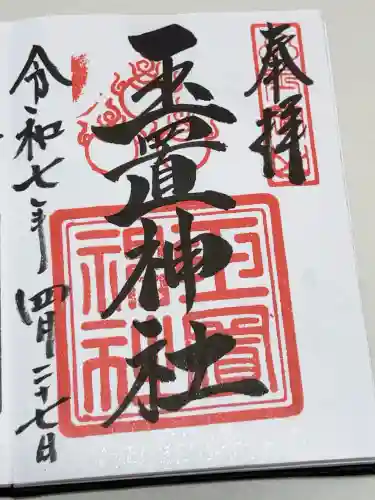 奉拝
玉置神社
令和七年四月二十七日
玉置
神社